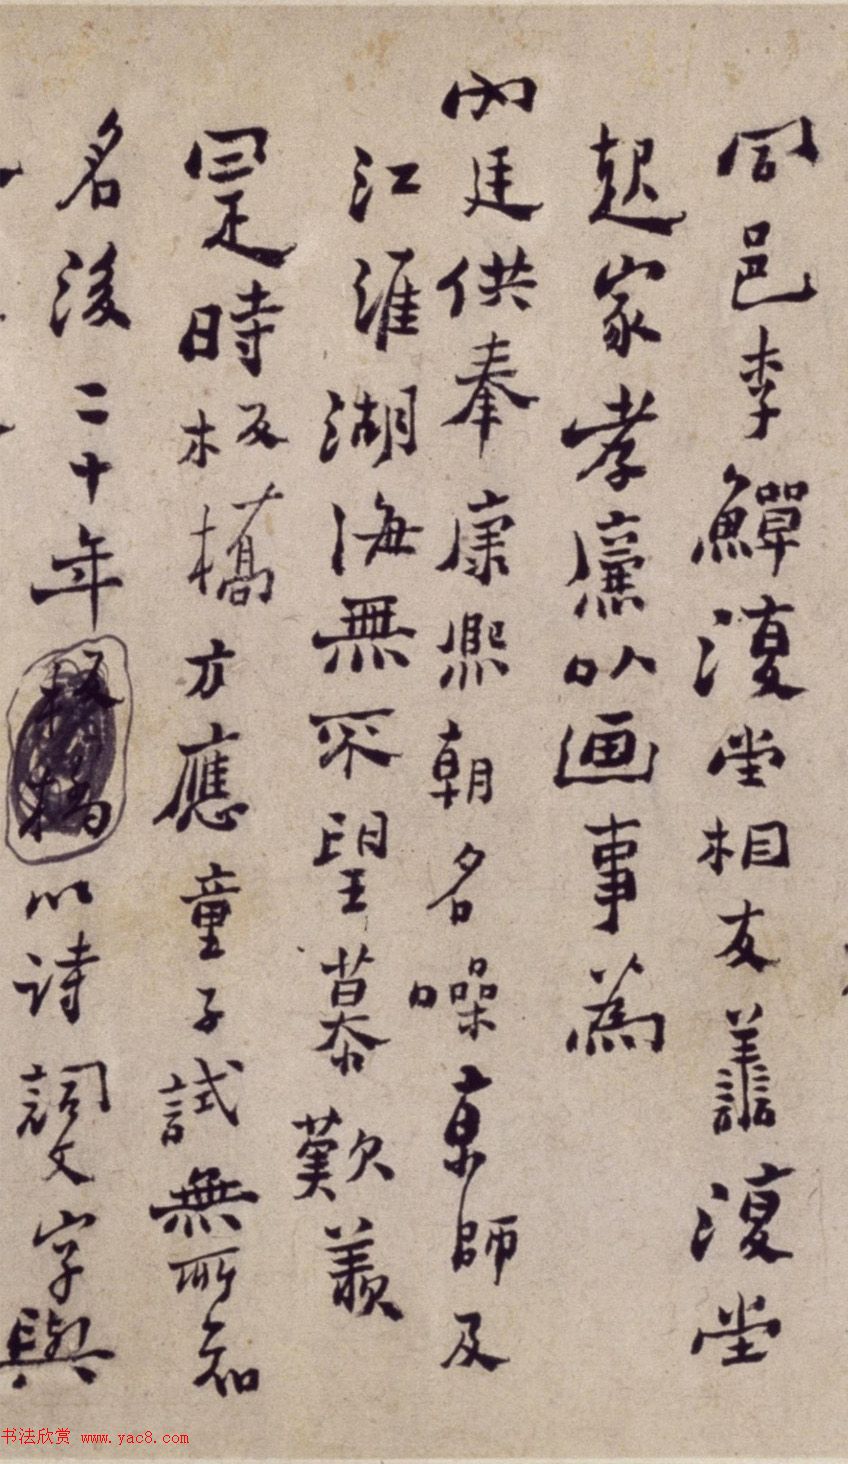 同邑李鱓復堂相友善復堂
起家孝廉以画事為
內廷供奉康熙朝名噪京師及
江淮湖海無不望慕歎羨
是時板橋方應童子試無所知
名後二十年板橋以詩詞文字與
书法欣赏 www.yac8.com